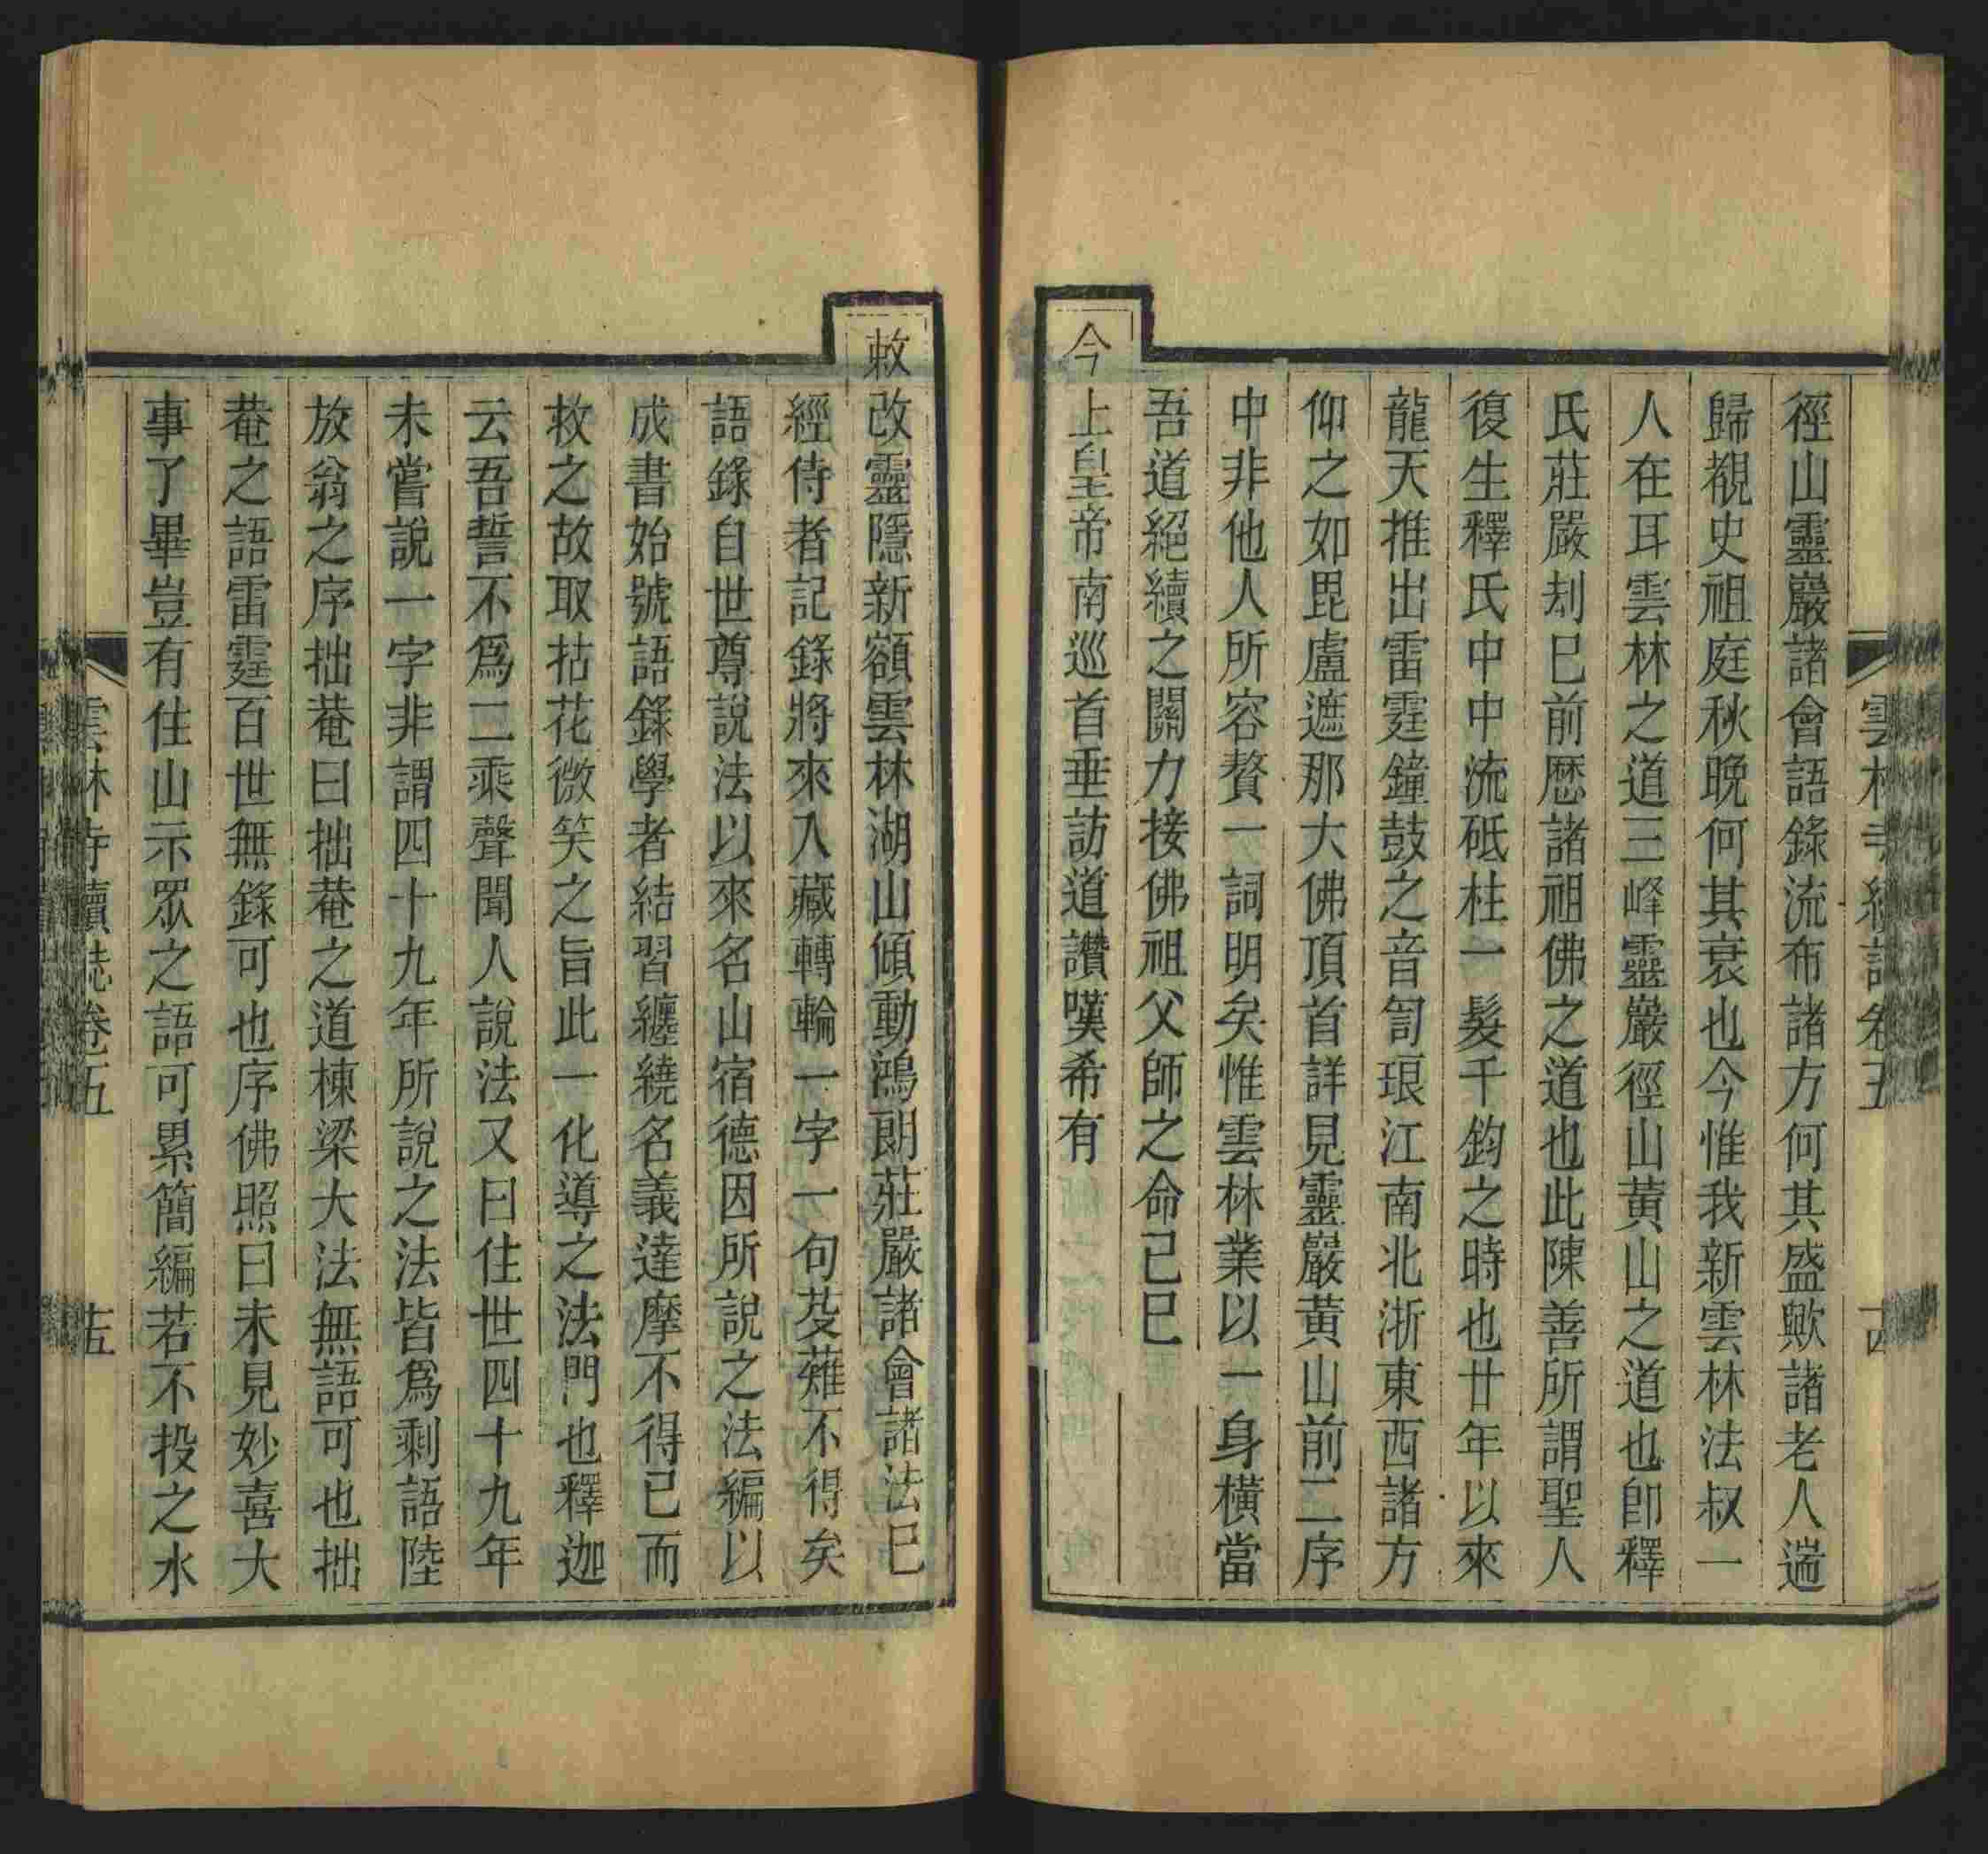 雲林寺續誌卷五
十四
徑山靈巖諸會語錄流布諸方何其盛歟諸老人遄
歸覩史祖庭秋晚何其衰也今惟我新雲林法叔一
人在耳雲林之道三峰靈巖徑山黃山之道也卽釋
氏莊嚴刦巳前歷諸祖佛之道也此陳善所謂聖人
復生釋氏中中流砥柱一髮千鈞之時也廿年以來
龍天推出雷霆鐘鼓之音訇琅江南北浙東西諸方
仰之如毘盧遮那大佛頂首詳見靈巖黃山前二序
中非他人所容贅一詞明矣惟雲林業以一身橫當
吾道絕續之關力接佛祖父師之命己巳
今上皇帝南巡首垂訪道讚嘆希有
敕改靈隱新額雲林湖山傾動鴻朗莊嚴諸會諸法巳
經侍者記錄將來入藏轉輪一字一句芟薙不得矣
語錄自世尊說法以來名山宿德因所說之法編以
成書始號語錄學者結習纏繞名義達摩不得已而
救之故取拈花微笑之旨此一化導之法門也釋迦
云吾誓不爲二乘聲聞人說法又曰住世四十九年
未嘗說一字非謂四十九年所說之法皆爲剩語陸
放翁之序拙菴曰拙菴之道棟梁大法無語可也拙
菴之語雷霆百世無錄可也序佛照曰未見妙喜大
事了畢豈有住山示眾之語可累簡編若不投之水
雲林寺續誌卷五
十五